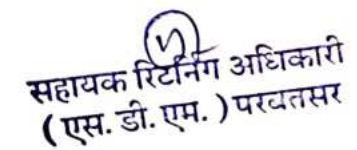 सहायक रिटर्निग अधिकारी
(एस. डी. एम. ) परबतसर